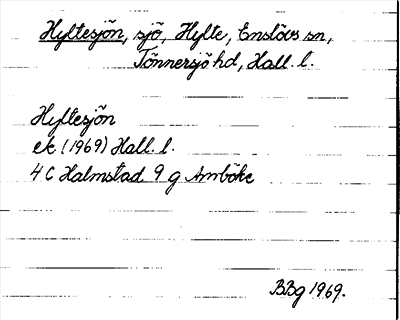 Hyltesjön, sjö, Hylte, Enslövs sn,
Tönnersjö hd, Hall. l.
Hyltesjön
ek (1969) Hall. l.
4 C Halmstad 9 g Årnböke
BBg 1969.